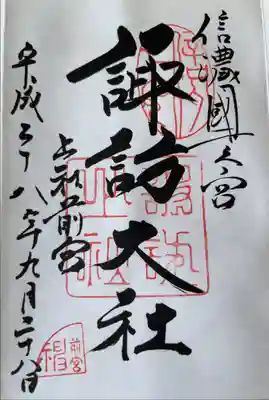 信濃國一之宮
諏訪大社
上社前宮
平成二十八年九月二十八日
諏訪大社
前宮